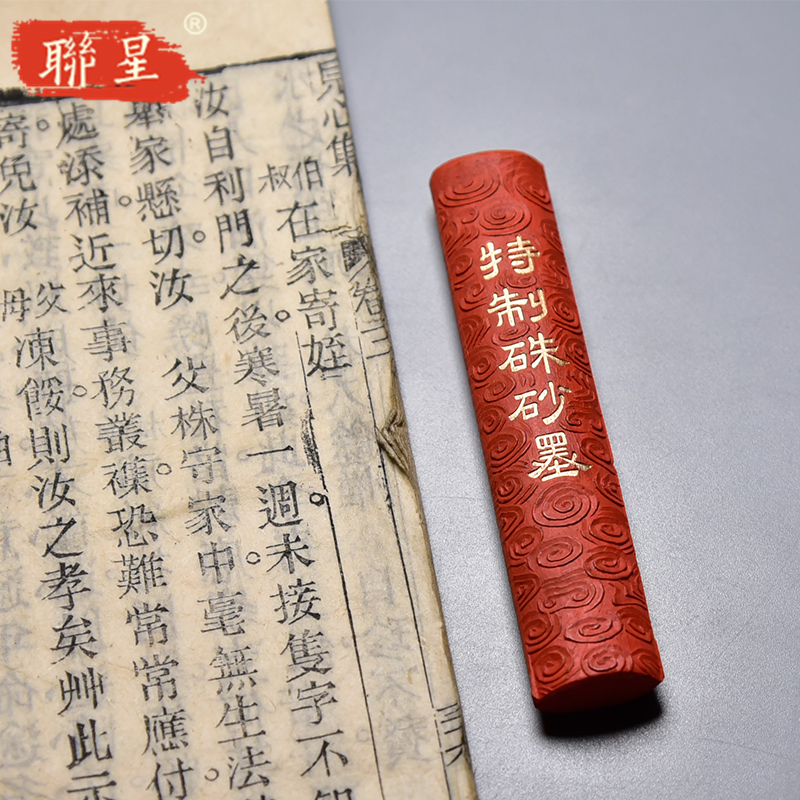 聯星®
特制硃砂墨
心集
卷
伯叔在家寄姪
汝自利門之後。寒暑一週。未接隻字不知
舉家懸切。汝父株守家中。毫無生法
處添補。近來事務叢襍。恐難常常應付
寄。免汝父母凍餒。則汝之孝矣艸此示